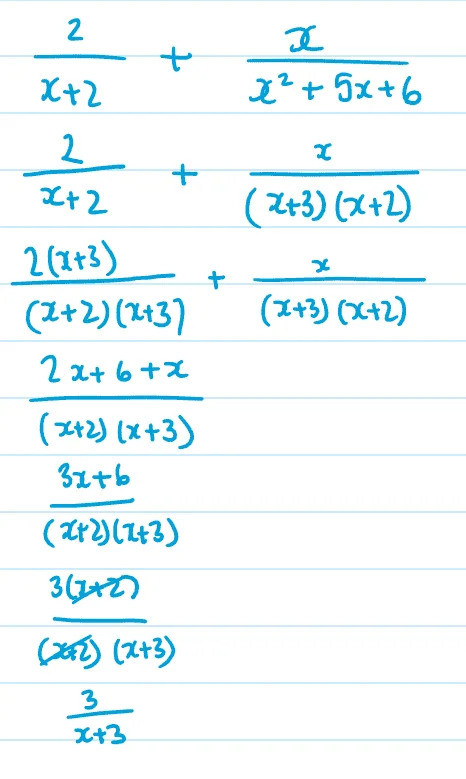 2/(x+2) + x/(x²+5x+6)
2/(x+2) + x/((x+3)(x+2))
2(x+3)/((x+2)(x+3)) + x/((x+3)(x+2))
(2x+6+x)/((x+2)(x+3))
(3x+6)/((x+2)(x+3))
3(x+2)/((x+2)(x+3))
3/(x+3)